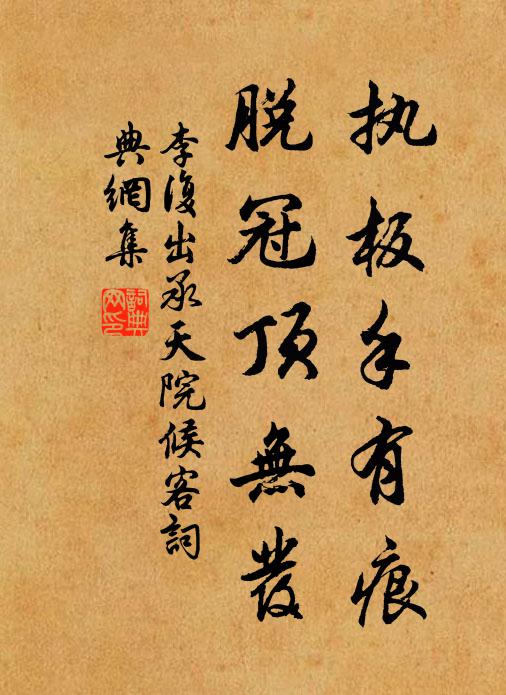 执板手有痕
脱冠顶無發
李復出承天院候客詞
典網集
詞典
网印